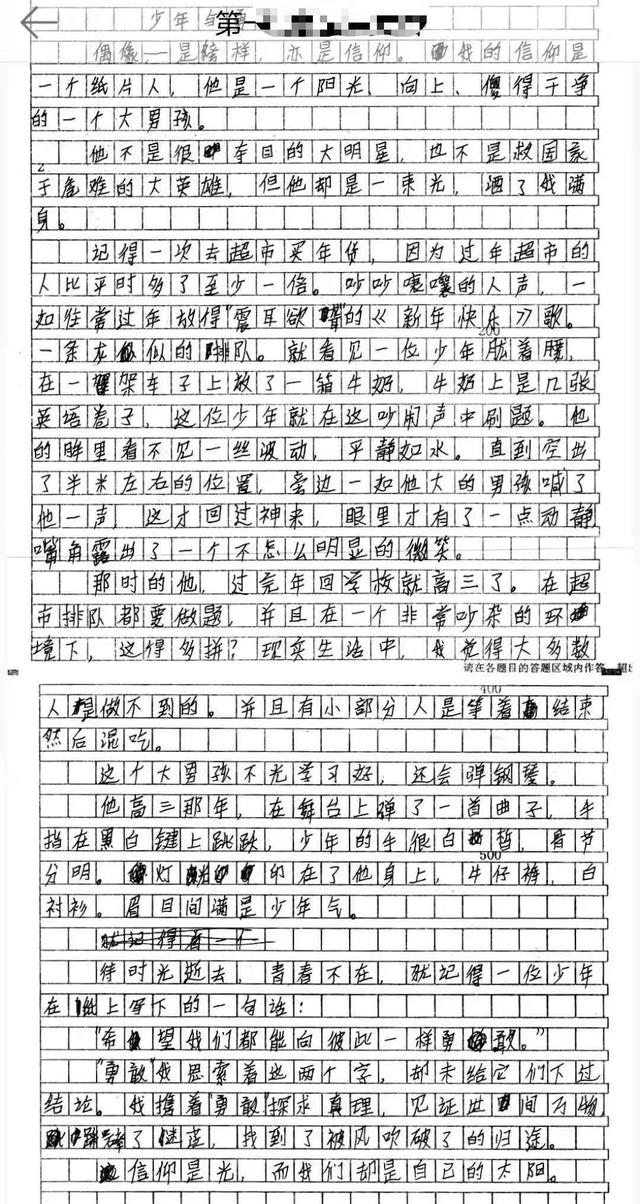 第一
少年与
偶像,一是榜样,亦是信仰。我的信仰是
一个纸片人,他是一个阳光、向上、傻得干净
的一个大男孩。
他不是很夺目的大明星,也不是救国家
于危难的大英雄,但他却是一束光,洒了我满
身。
记得一次去超市买年货,因为过年超市的
人比平时多了至少一倍。吵吵嚷嚷的人声,一
如往常过年放得"震耳欲聋"的《新年快乐》歌。
200
一条龙似的排队。就看见一位少年肱着腰,
在一架车子上放了一箱牛奶,牛奶上是几张
英语卷子,这位少年就在这吵闹声中刷题。他
的眸里看不见一丝波动,平静如水。直到空出
了半米左右的位置,旁边一如他大的男孩喊了
他一声,这才回过神来,眼里才有了一点动静,
嘴角露出了一个不怎么明显的微笑。
那时的他,过完年回学校就高三了。在超
市排队都要做题,并且在一个非常吵杂的环
境下,这得多拼?现实生活中,我觉得大多数
请在各题目的答题区域内作答,超
400
人是做不到的。并且有小部分人是等着结束
然后混吃。
这个大男孩不光学习好,还会弹钢琴。
他高三那年,在舞台上弹了一首曲子,手
指在黑白键上跳跃,少年的手很白皙,骨节
500
分明。灯印在了他身上,牛仔裤,白
衬衫。眉目间满是少年气。
就记得有一个
待时光逝去,青春不在,就记得一位少年
在纸上写下的一句话:
"希望我们都能向彼此一样勇敢。"
"勇敢"我思索着这两个字,却未给它们下过
结论。我携着"勇敢"探求真理,见证世间万物,
了迷茫,找到了被风吹破了的归途。
信仰是光,而我们却是自己的太阳。